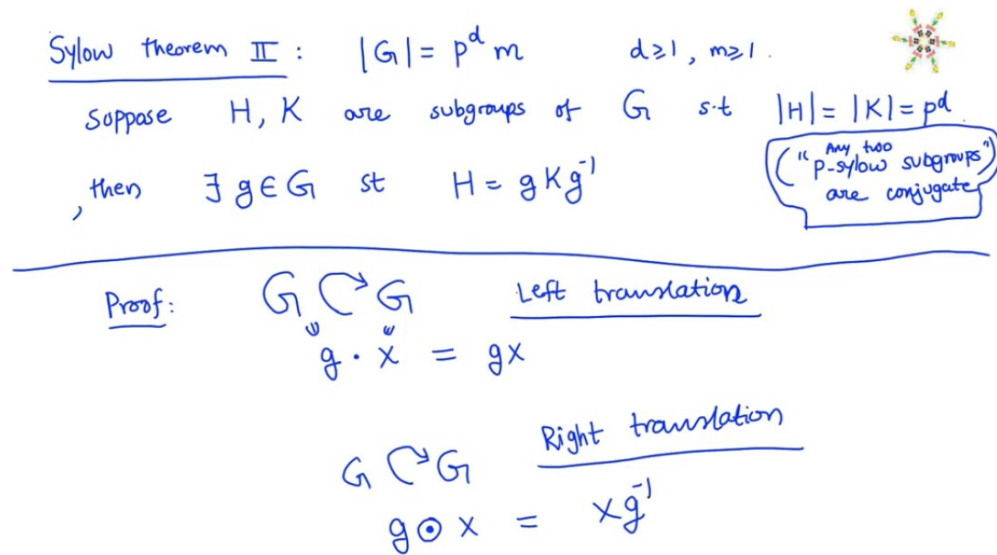 Sylow theorem II : |G| = p^d m d≥1, m≥1.
Soppase H, K are subgroups of G s.t |H| = |K| = p^d.
, then ∃ g∈G st H = gKg⁻¹
("Any two
p-sylow subgroups")
are conjugate
Proof: G ↷ G Left translation
g · x = gx
G ↷ G Right translation
g ⊙ x = xg⁻¹